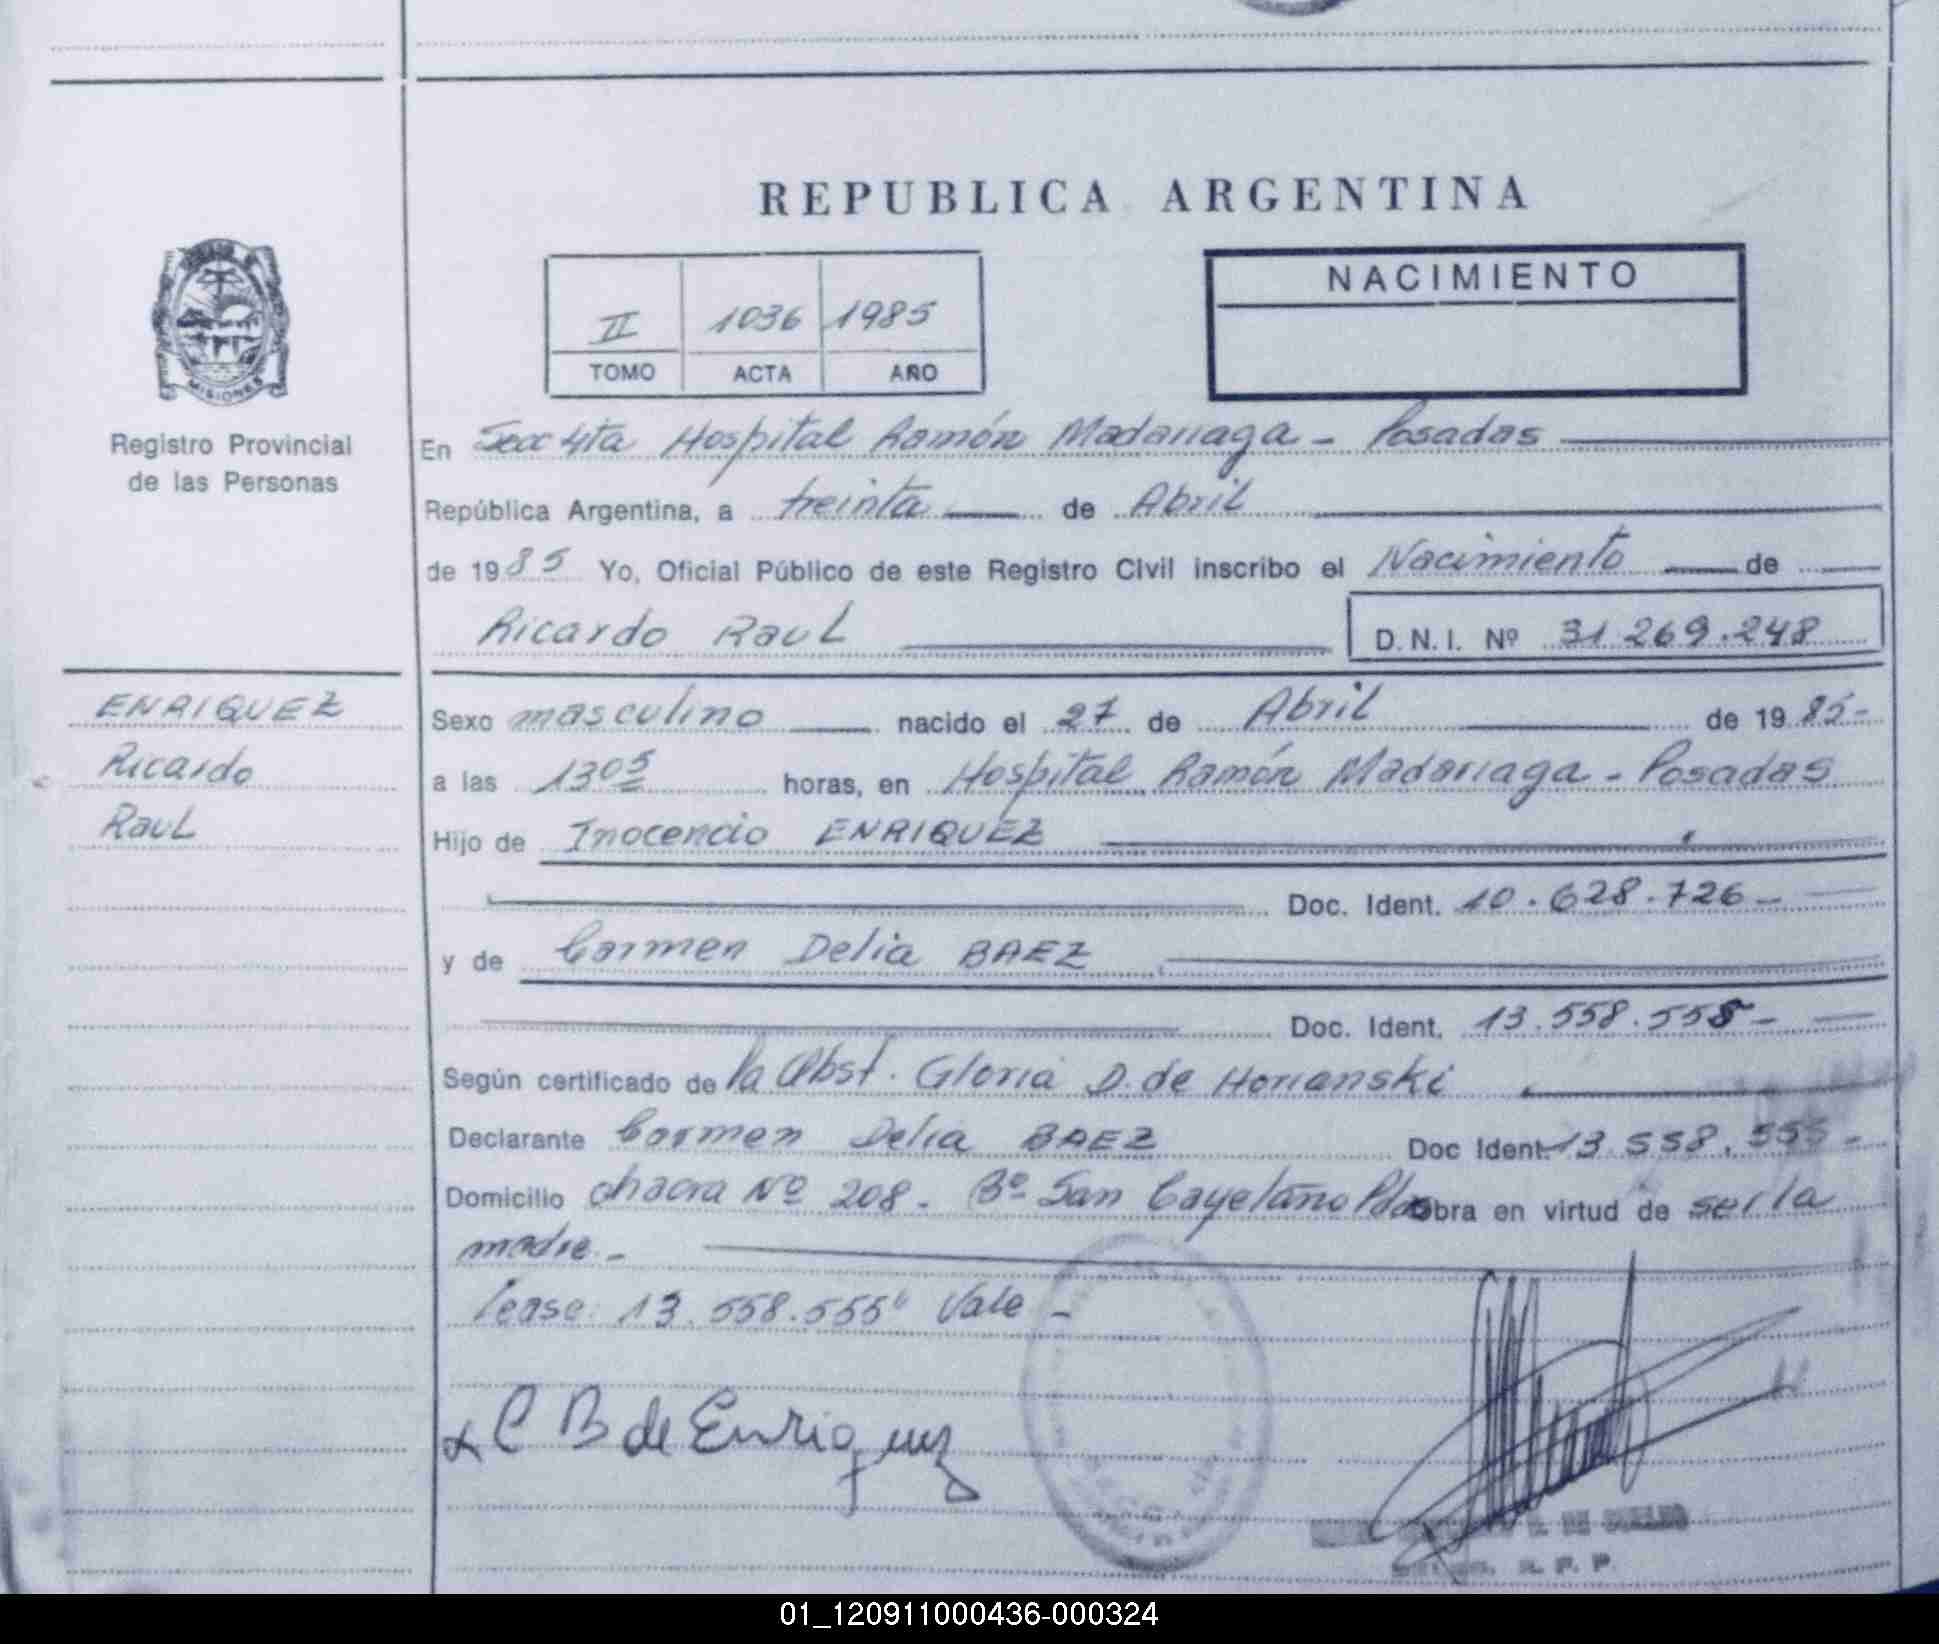 REPUBLICA ARGENTINA
NACIMIENTO
II 1036 1985
TOMO ACTA AÑO
MISIONES
Registro Provincial
de las Personas
En Secc 4ta Hospital Ramón Madariaga - Posadas
República Argentina, a treinta de Abril
de 1985 Yo, Oficial Público de este Registro Civil inscribo el Nacimiento de
Ricardo Raul D.N.I. Nº 31.269.248
ENRIQUEZ
Ricardo
Raul
Sexo masculino nacido el 27 de Abril de 1985-
a las 13 05 horas, en Hospital Ramón Madariaga - Posadas
Hijo de Inocencio ENRIQUEZ
Doc. Ident. 10.628.726-
y de Carmen Delia BAEZ
Doc. Ident. 13.558.558-
Según certificado de la Obst. Gloria D. de Horianski
Declarante Carmen Delia BAEZ Doc Ident. 13.558.555-
Domicilio chacra Nº 208 - Bº San Cayetano Pdas Obra en virtud de ser la
madre.-
Lease: 13.558.555" Vale -
C B de Enriquez
R. P. P.
01_120911000436-000324